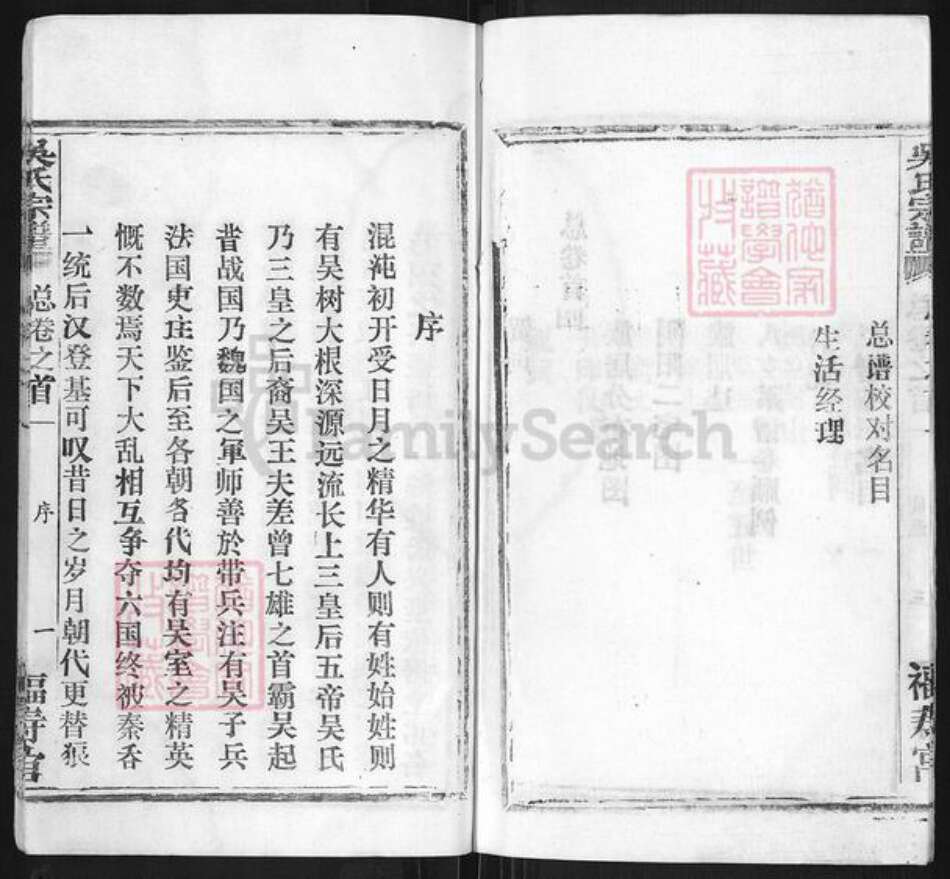 吴氏宗譜
总谱校对名目
生活经理
福寿宫
猶他家譜學會收藏
序
混沌初开受日月之精华有人则有姓始姓则
有吴树大根深源远流长上三皇后五帝吴氏
乃三皇之后裔吴王夫差曾七雄之首霸吴起
昔战国乃魏国之軍师善於带兵注有吴子兵
法国史庄鉴后至各朝各代均有吴室之精英
慨不数焉天下大乱相互争夺六国终被秦吞
一统后汉登基可叹昔日之岁月朝代更替狠
吴氏宗譜
总卷之首
序
一
福寿宫
猶他家譜學會收藏
FamilySearch